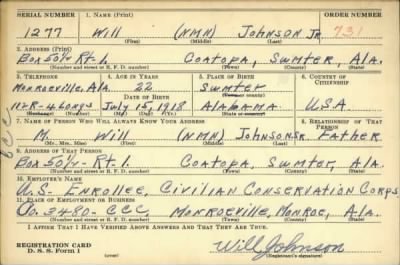 SERIAL NUMBER 1. NAME (Print) ORDER NUMBER
1277 Will (NMN) Johnson Jr. 731
(First) (Middle) (Last)
2. ADDRESS (Print)
Box 50½ Rt. 1. Coatopa, Sumter, Ala.
(Number and street or R. F. D. number) (Town) (County) (State)
3. TELEPHONE 4. AGE IN YEARS 5. PLACE OF BIRTH 6. COUNTRY OF CITIZENSHIP
Monroeville, Ala. 22 Sumter
DATE OF BIRTH (Town or county)
July 15, 1918 Alabama U.S.A.
(Exchange) (Number) (Mo.) (Day) (Yr.) (State or country)
7. NAME OF PERSON WHO WILL ALWAYS KNOW YOUR ADDRESS 8. RELATIONSHIP OF THAT PERSON
M. Will (NMN) Johnson Sr. Father
(Mr., Mrs., Miss) (First) (Middle) (Last)
9. ADDRESS OF THAT PERSON
Box 50½ - Rt. 1. Coatopa, Sumter, Ala.
(Number and street or R. F. D. number) (Town) (County) (State)
10. EMPLOYER'S NAME
U.S. Enrollee, Civilian Conservation Corps
11. PLACE OF EMPLOYMENT OR BUSINESS
Co. 3480 - CCC Monroeville, Monroe, Ala.
(Number and street or R. F. D. number) (Town) (County) (State)
I AFFIRM THAT I HAVE VERIFIED ABOVE ANSWERS AND THAT THEY ARE TRUE.
REGISTRATION CARD
D. S. S. Form 1
Will Johnson
(Registrant's signature)
CCC